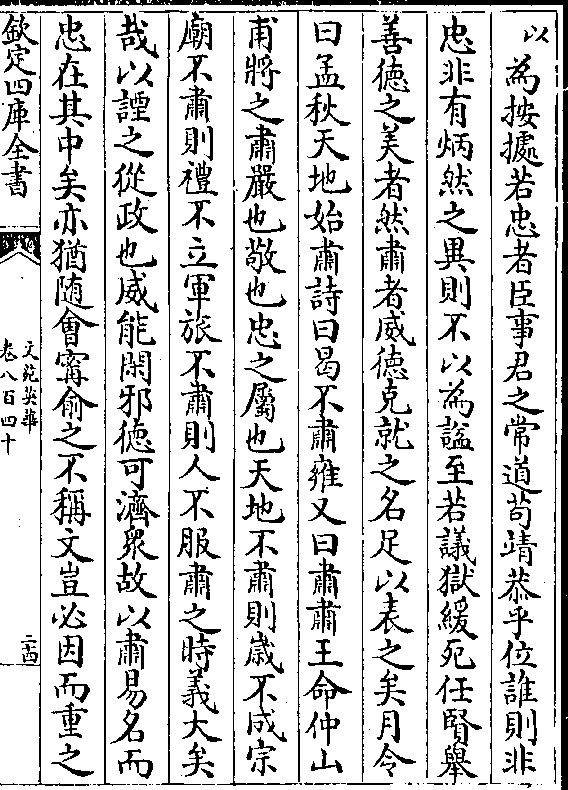 以為按據若忠者臣事君之常道苟靖恭乎位誰則非
忠非有炳然之異則不以為諡至若議獄緩死任賢舉
善德之美者然肅者威德克就之名足以表之矣月令
曰孟秋天地始肅詩曰曷不肅雍又曰肅肅王命仲山
甫將之肅嚴也敬也忠之屬也天地不肅則歲不成宗
廟不肅則禮不立軍旅不肅則人不服肅之時義大矣
哉以諲之從政也威能閑邪德可濟衆故以肅易名而
忠在其中矣亦猶随會甯俞之不稱文豈必因而重之
欽定四庫全書
文苑英華
卷八百四十
二十四